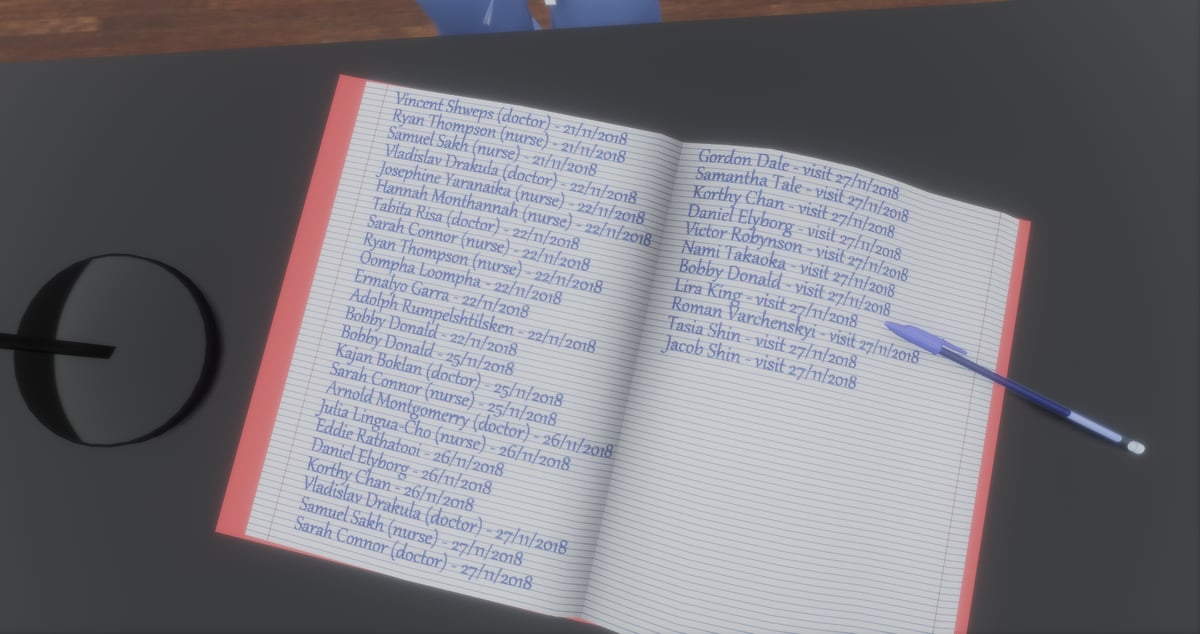 Vincent Shweps (doctor) - 21/11/2018
Ryan Thompson (nurse) - 21/11/2018
Samuel Sakh (nurse) - 21/11/2018
Vladislav Drakula (doctor) - 22/11/2018
Josephine Yaranaika (nurse) - 22/11/2018
Hannah Monthannah (nurse) - 22/11/2018
Tabita Risa (doctor) - 22/11/2018
Sarah Connor (nurse) - 22/11/2018
Ryan Thompson (nurse) - 22/11/2018
Oompha Loompha - 22/11/2018
Ermalyo Garra - 22/11/2018
Adolph Rumpelshtilsken - 22/11/2018
Bobby Donald - 22/11/2018
Bobby Donald - 25/11/2018
Kajan Boklan (doctor) - 25/11/2018
Sarah Connor (nurse) - 25/11/2018
Arnold Montgomerry (doctor) - 26/11/2018
Julia Lingua-Cho (nurse) - 26/11/2018
Eddie Rathatooi - 26/11/2018
Daniel Elyborg - 26/11/2018
Korthy Chan - 26/11/2018
Vladislav Drakula (doctor) - 27/11/2018
Samuel Sakh (nurse) - 27/11/2018
Sarah Connor (doctor) - 27/11/2018
Gordon Dale - visit 27/11/2018
Samantha Tale - visit 27/11/2018
Korthy Chan - visit 27/11/2018
Daniel Elyborg - visit 27/11/2018
Victor Robynson - visit 27/11/2018
Nami Takaoka - visit 27/11/2018
Bobby Donald - visit 27/11/2018
Lira King - visit 27/11/2018
Roman Varchenskyi - visit 27/11/2018
Tasia Shin - visit 27/11/2018
Jacob Shin - visit 27/11/2018